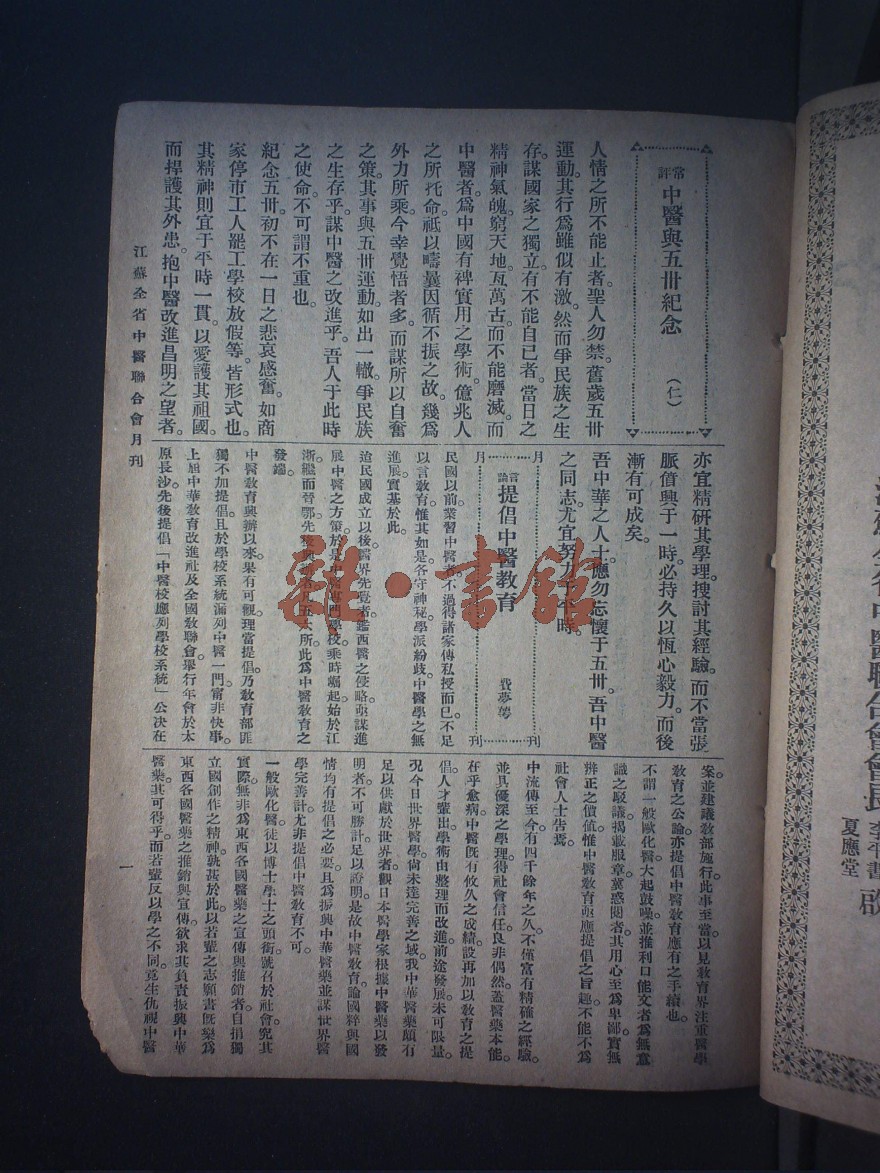 常評 中醫與五卅紀念 （仁）
人情之所不能止者。聖人勿禁。舊歲五卅
運動。其行爲雖似有激。然而爭民族之生
存。謀國家之獨立。有不能自已者。當日之
精神氣魄。窮天地。亙萬古。而不能磨滅。而
中醫者。爲中國有裨實用之學術。億兆人
之所托命。祗以疇曩因循不振之故。幾爲
外力所乘。今幸覺悟者多。而謀所以自奮
之策。其事與五卅運動。如出一轍。爭民族
之生存乎。謀中醫之改進乎。吾人于此時
之使命。不可謂不重也。
紀念五卅。初不在一日之悲哀感奮。如商
家停市。工人罷工。學校放假等。皆形式也。
其精神則宜于平時一貫。以愛護其祖國。
而捍護其外患。抱中醫改進昌明之望者。
亦宜精研其學理。搜討其經驗。而不當張
脈僨興于一時。必持久以恆心毅力。而後
漸有可成矣。
吾中華之人士。應勿忘懷于五卅。吾中醫
之同志。尤宜努力于平時。
月刊
言論 提倡中醫教育 費夢
月刊
民國以前。業習中醫者。不過得諸家傳私授而已。不足
以言教育。惟其如是。各守神秘。學派紛歧。中醫學之無
進展。實基於此。
迨民國成立以後。醫界先覺者。鑑西醫之侵略。亟謀進
展中醫之方策。於是中醫專門學校。乘時崛起。始於江
浙。繼而晉鄂。先後 五六所。此爲中醫教育之
發端。
中醫教育興辦以來。果有可觀。理當提倡。乃教育部匪
獨不加提倡。且於學校系統。漏列中醫一門。甯非快事。
上屆中華教育改進社。及全國教聯會。舉行年會於太
原長沙。先後提倡「中醫校應列學校系統」公決在
案。並建議教部施行。此事至當。以見教育界注重醫學
教育之公論。亦提倡中醫教育應有之手續也。
不謂一般歐化醫。大起鼓噪。並推利口能文者。爲無意
識之駁議。揭載報章。冀惑閱者。其用心至爲卑鄙。實無
辨正之價值。惟中醫教育亟應提倡之旨趣。不能不爲
社會人士告焉。
中流傳至今。有四千餘年之久。不僅富有精確之經驗。
並具優深之學理。得社會信任。良非偶然。蓋醫藥本能。
在乎愈病。中醫旣有攸久之成績。設再加以教育之提
倡。人才輩出。學術由整理而改進。前途發展。未可限量。
況今日世界醫學。尙未達完善之域。我中華醫藥。頗有
足以供獻於世界者。觀日本醫學家。根據中醫藥以發
明者。不可勝計。足以證明。是故中醫教育。論國粹與國
情。均有提倡之必要。且爲振興中華醫藥。並謀世界醫
學完善計。尤非提倡中醫教育不可。
一般歐化醫。徒以博士學士之頭銜。號召於社會。究其
實際。無非爲東西各國醫藥之宣傳與推銷者。自捐獨
立國創作之精神。孰甚於此。以若輩之志願。書旣樂爲
東西各國醫藥之推銷與宣傳。欲求其負責振興中華
醫藥。其可得乎。而若輩反以學之不同。竟生仇視中醫
江蘇全省中醫聯合會月刊
一
江蘇全省中醫聯合會會長 李平書
夏應堂 啟
雒·書館